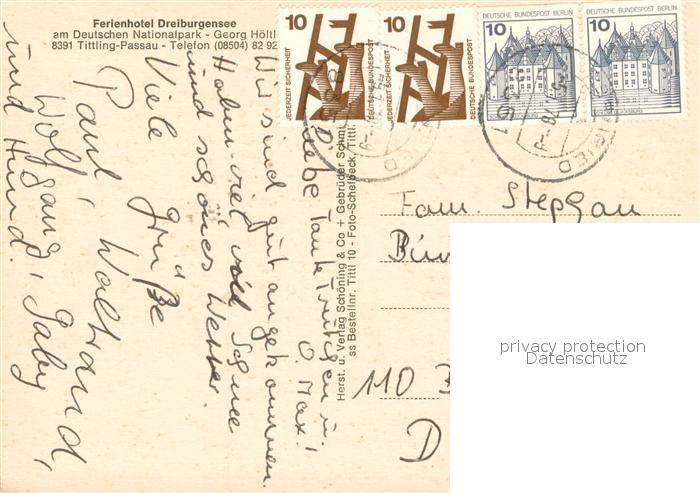 Ferienhotel Dreiburgensee
am Deutschen Nationalpark - Georg Höltl
8391 Tittling-Passau - Telefon (08504) 82 92
10
JEDERZEIT SICHERHEIT
DEUTSCHE BUNDESPOST
10
JEDERZEIT SICHERHEIT
DEUTSCHE BUNDESPOST
DEUTSCHE BUNDESPOST BERLIN
10
DEUTSCHE BUNDESPOST BERLIN
10
Liebe Tante
O. Max!
Wir sind gut angekommen.
Haben viel Schnee
und schönes Wetter.
Viele Grüße
Paul, Waltraud,
Wolfgang, Gaby
und Hund.
Herst. u. Verlag Schöning & Co + Gebrüder Schmi
ss Bestellnr. Tittl 10 - Foto-Scheibeck, Tittl.
Fam. Stephan
110
D
privacy protection
Datenschutz